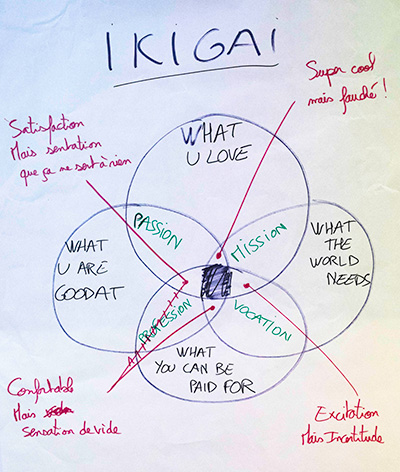 IKIGAI
Super cool
mais fauché !
Satisfaction
Mais sentation
que ça me sert à rien
WHAT
U LOVE
PASSION
MISSION
WHAT
U ARE
GOOD AT
WHAT
THE
WORLD
NEEDS
PROFESSION
VOCATION
WHAT
YOU CAN BE
PAID FOR
Confortable
Mais
Sensation de vide
Excitation
Mais Incertitude